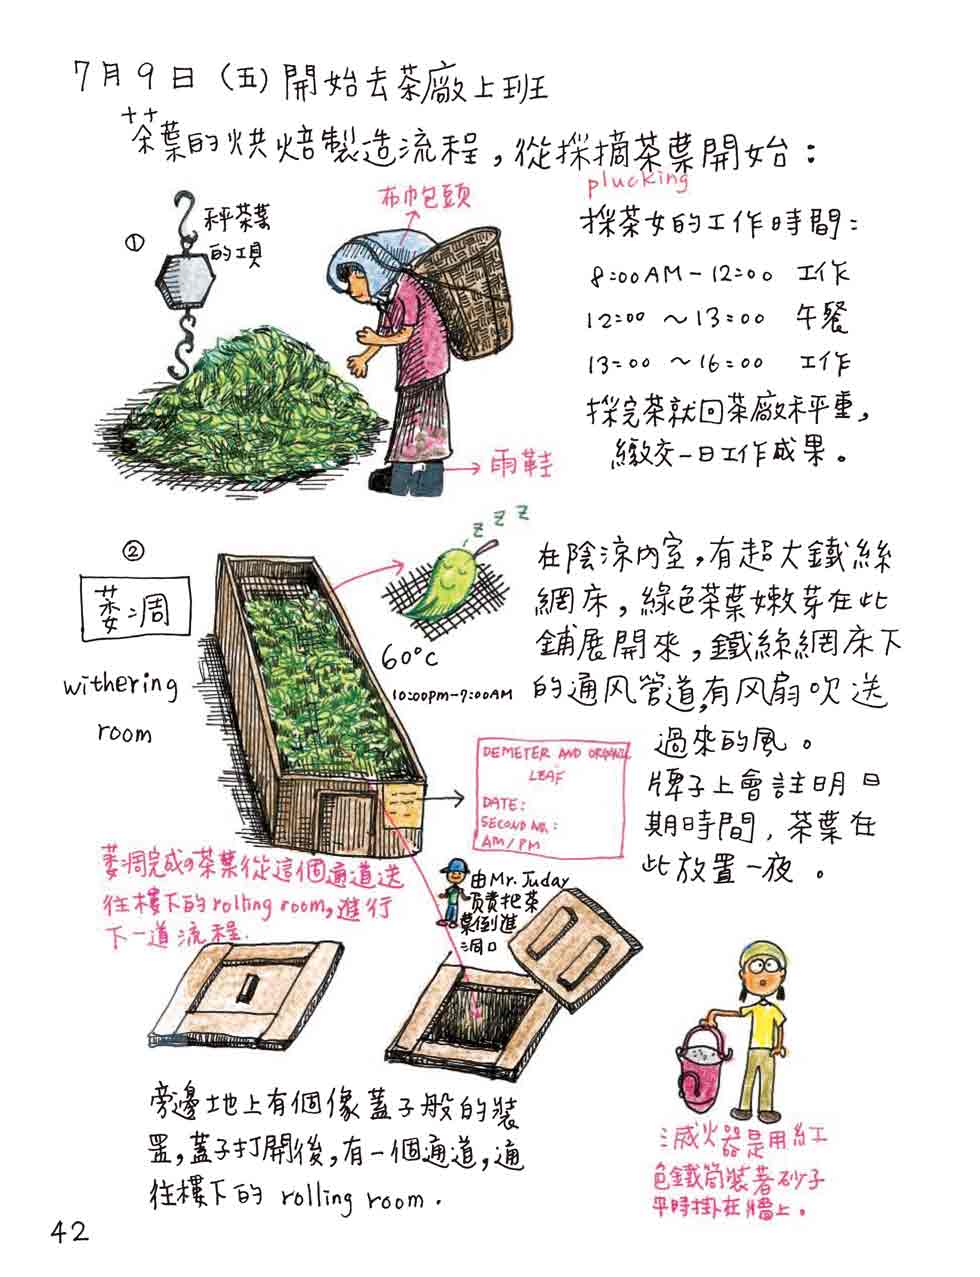 7月9日（五）開始去茶廠上班
茶葉的烘焙製造流程，從採摘茶葉開始：
plucking
布巾包頭
①
秤茶葉
的工具
採茶女的工作時間：
8:00AM-12:00 工作
12:00 ~13:00 午餐
13:00 ~16:00 工作
採完茶就回茶廠秤重，
繳交一日工作成果。
雨鞋
②
萎凋
withering
room
z z z
60°C
10:00PM-7:00AM
在陰涼內室，有超大鐵絲
網床，綠色茶葉嫩芽在此
鋪展開來，鐵絲網床下
的通风管道，有风扇吹送
過來的風。
牌子上會註明日
期時間，茶葉在
此放置一夜。
DEMETER AND ORGANIC
LEAF
DATE:
SECOND NO.:
AM/PM
萎凋完成的茶葉從這個通道送
往樓下的rolling room，進行
下一道流程.
由Mr. Juday
负責把茶
葉倒進
洞口
旁邊地上有個像蓋子般的裝
置，蓋子打開後，有一個通道，通
往樓下的 rolling room.
滅火器是用紅
色鐵筒裝著砂子
平時掛在牆上。
42